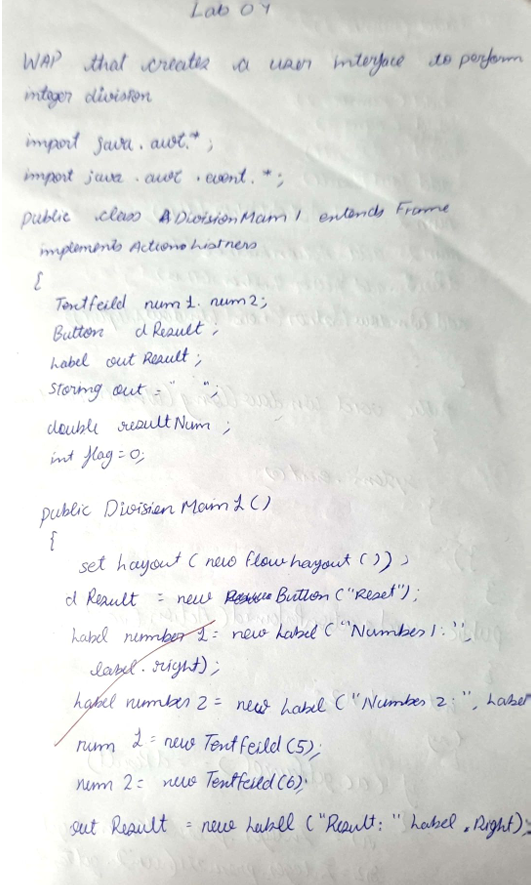 Lab 04
WAP that creates a user interface to perform
integer division
import java.awt.*;
import java.awt.event.*;
public class A DivisionMain1 extends Frame
implements Actions Listners
{
Textfeild num 1. num 2;
Button d Result;
Label out Result;
Storing out = " ";
double result Num;
int flag = 0;
public Division Main 1 ()
{
set Layout (new flow Layout ());
d Result = new Button ("Reset");
Label number 1 = new Label ("Number 1:",
label.right);
Label number 2 = new Label ("Number 2:", Label
num 1 = new Textfeild (5);
num 2 = new Textfeild (6);
out Result = new Labell ("Result:" Label.Right);